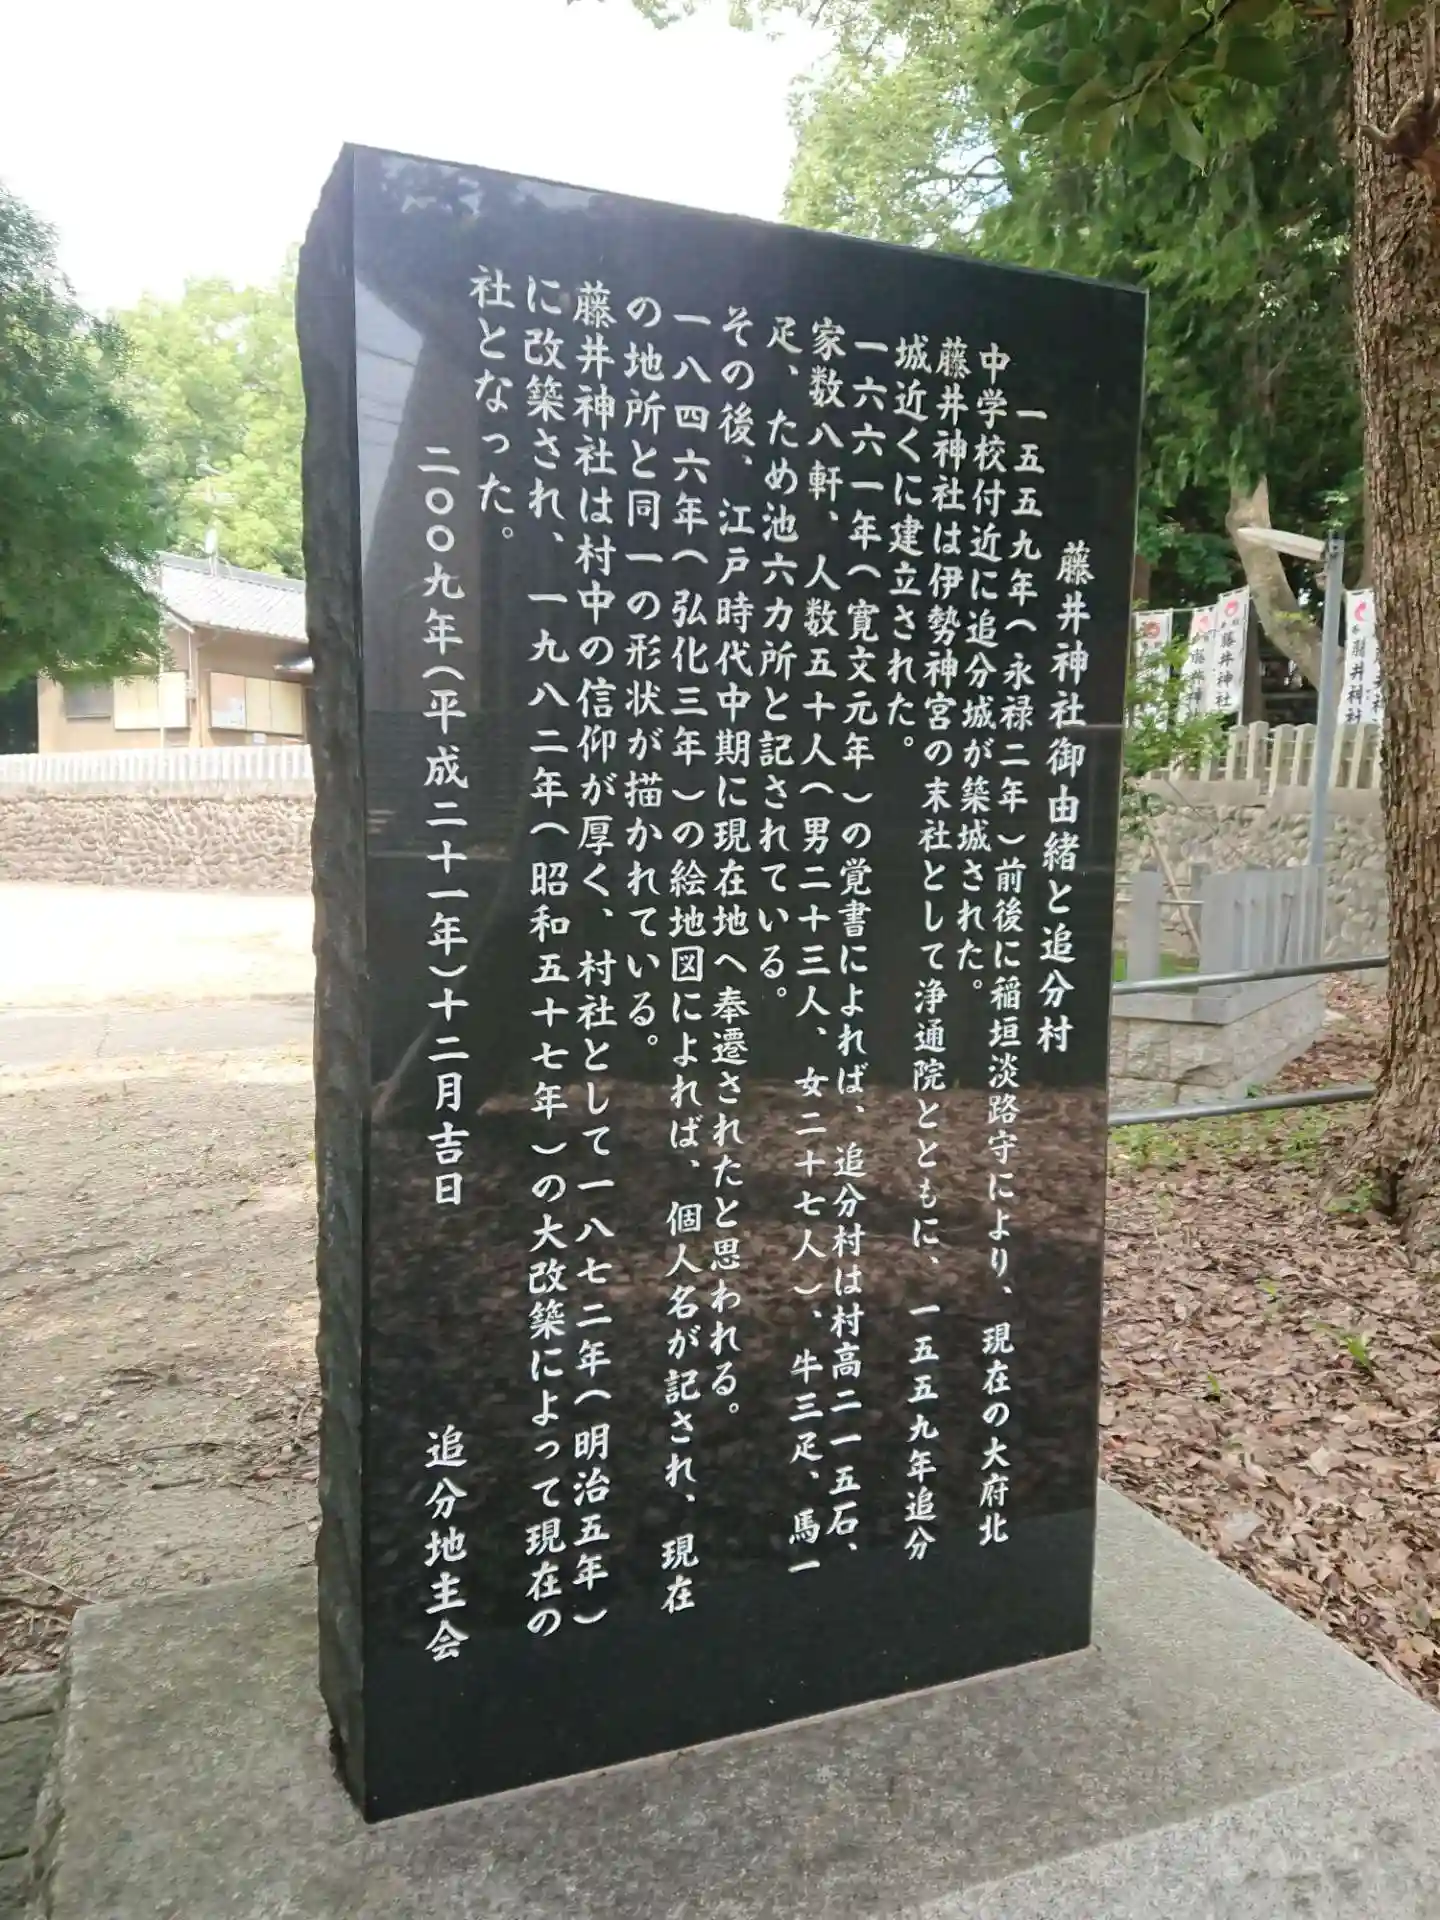 藤井神社御由緒と追分村
一五五九年(永禄二年)前後に稲垣淡路守により、現在の大府北
中学校付近に追分城が築城された。
藤井神社は伊勢神宮の末社として浄通院とともに、一五五九年追分
城近くに建立された。
一六六一年(寛文元年)の覚書によれば、追分村は村高二一五石、
家数八軒、人数五十人(男二十三人、女二十七人)、牛三足、馬一
足、ため池六カ所と記されている。
その後、江戸時代中期に現在地へ奉遷されたと思われる。
一八四六年(弘化三年)の絵地図によれば、個人名が記され、現在
の地所と同一の形状が描かれている。
藤井神社は村中の信仰が厚く、村社として一八七二年(明治五年)
に改築され、一九八二年(昭和五十七年)の大改築によって現在の
社となった。
二〇〇九年(平成二十一年)十二月吉日
追分地主会
藤井神社
藤井神社